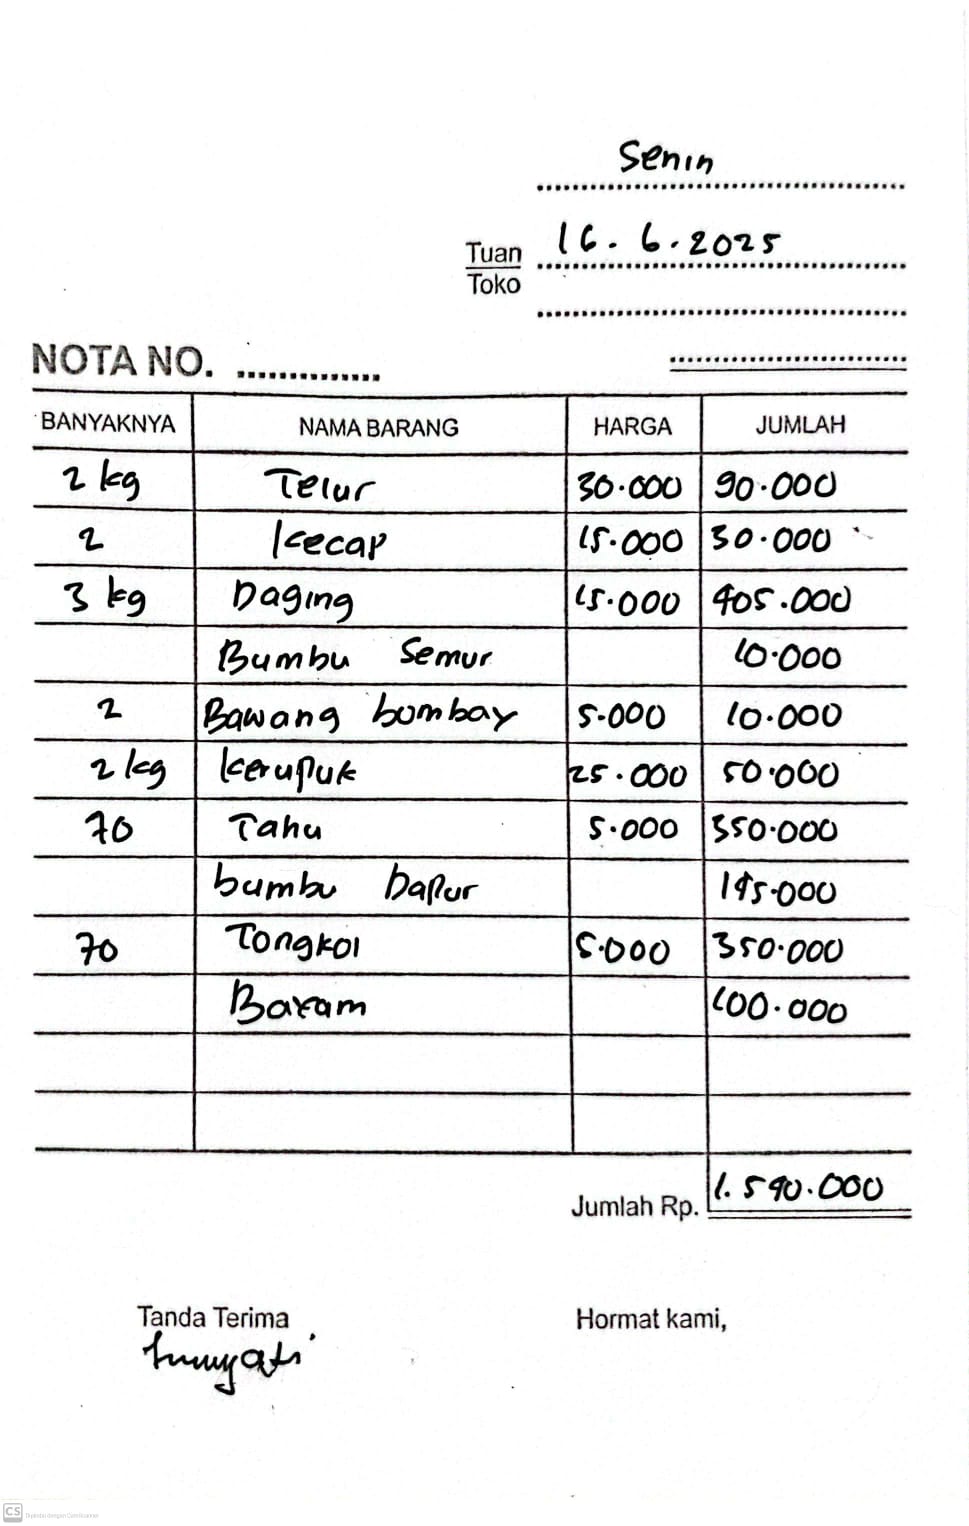 Senin
Tuan 16.6.2025
Toko
NOTA NO. ..............
BANYAKNYA NAMA BARANG HARGA JUMLAH
2 kg Telur 30.000 90.000
2 Kecap 15.000 30.000
3 kg Daging 15.000 405.000
Bumbu Semur 10.000
2 Bawang bombay 5.000 10.000
2 kg Kerupuk 25.000 50.000
70 Tahu 5.000 350.000
bumbu Dapur 195.000
70 Tongkol 5.000 350.000
Bayam 100.000
Jumlah Rp. 1.590.000
Tanda Terima Hormat kami,
CS Dipindai dengan CamScanner